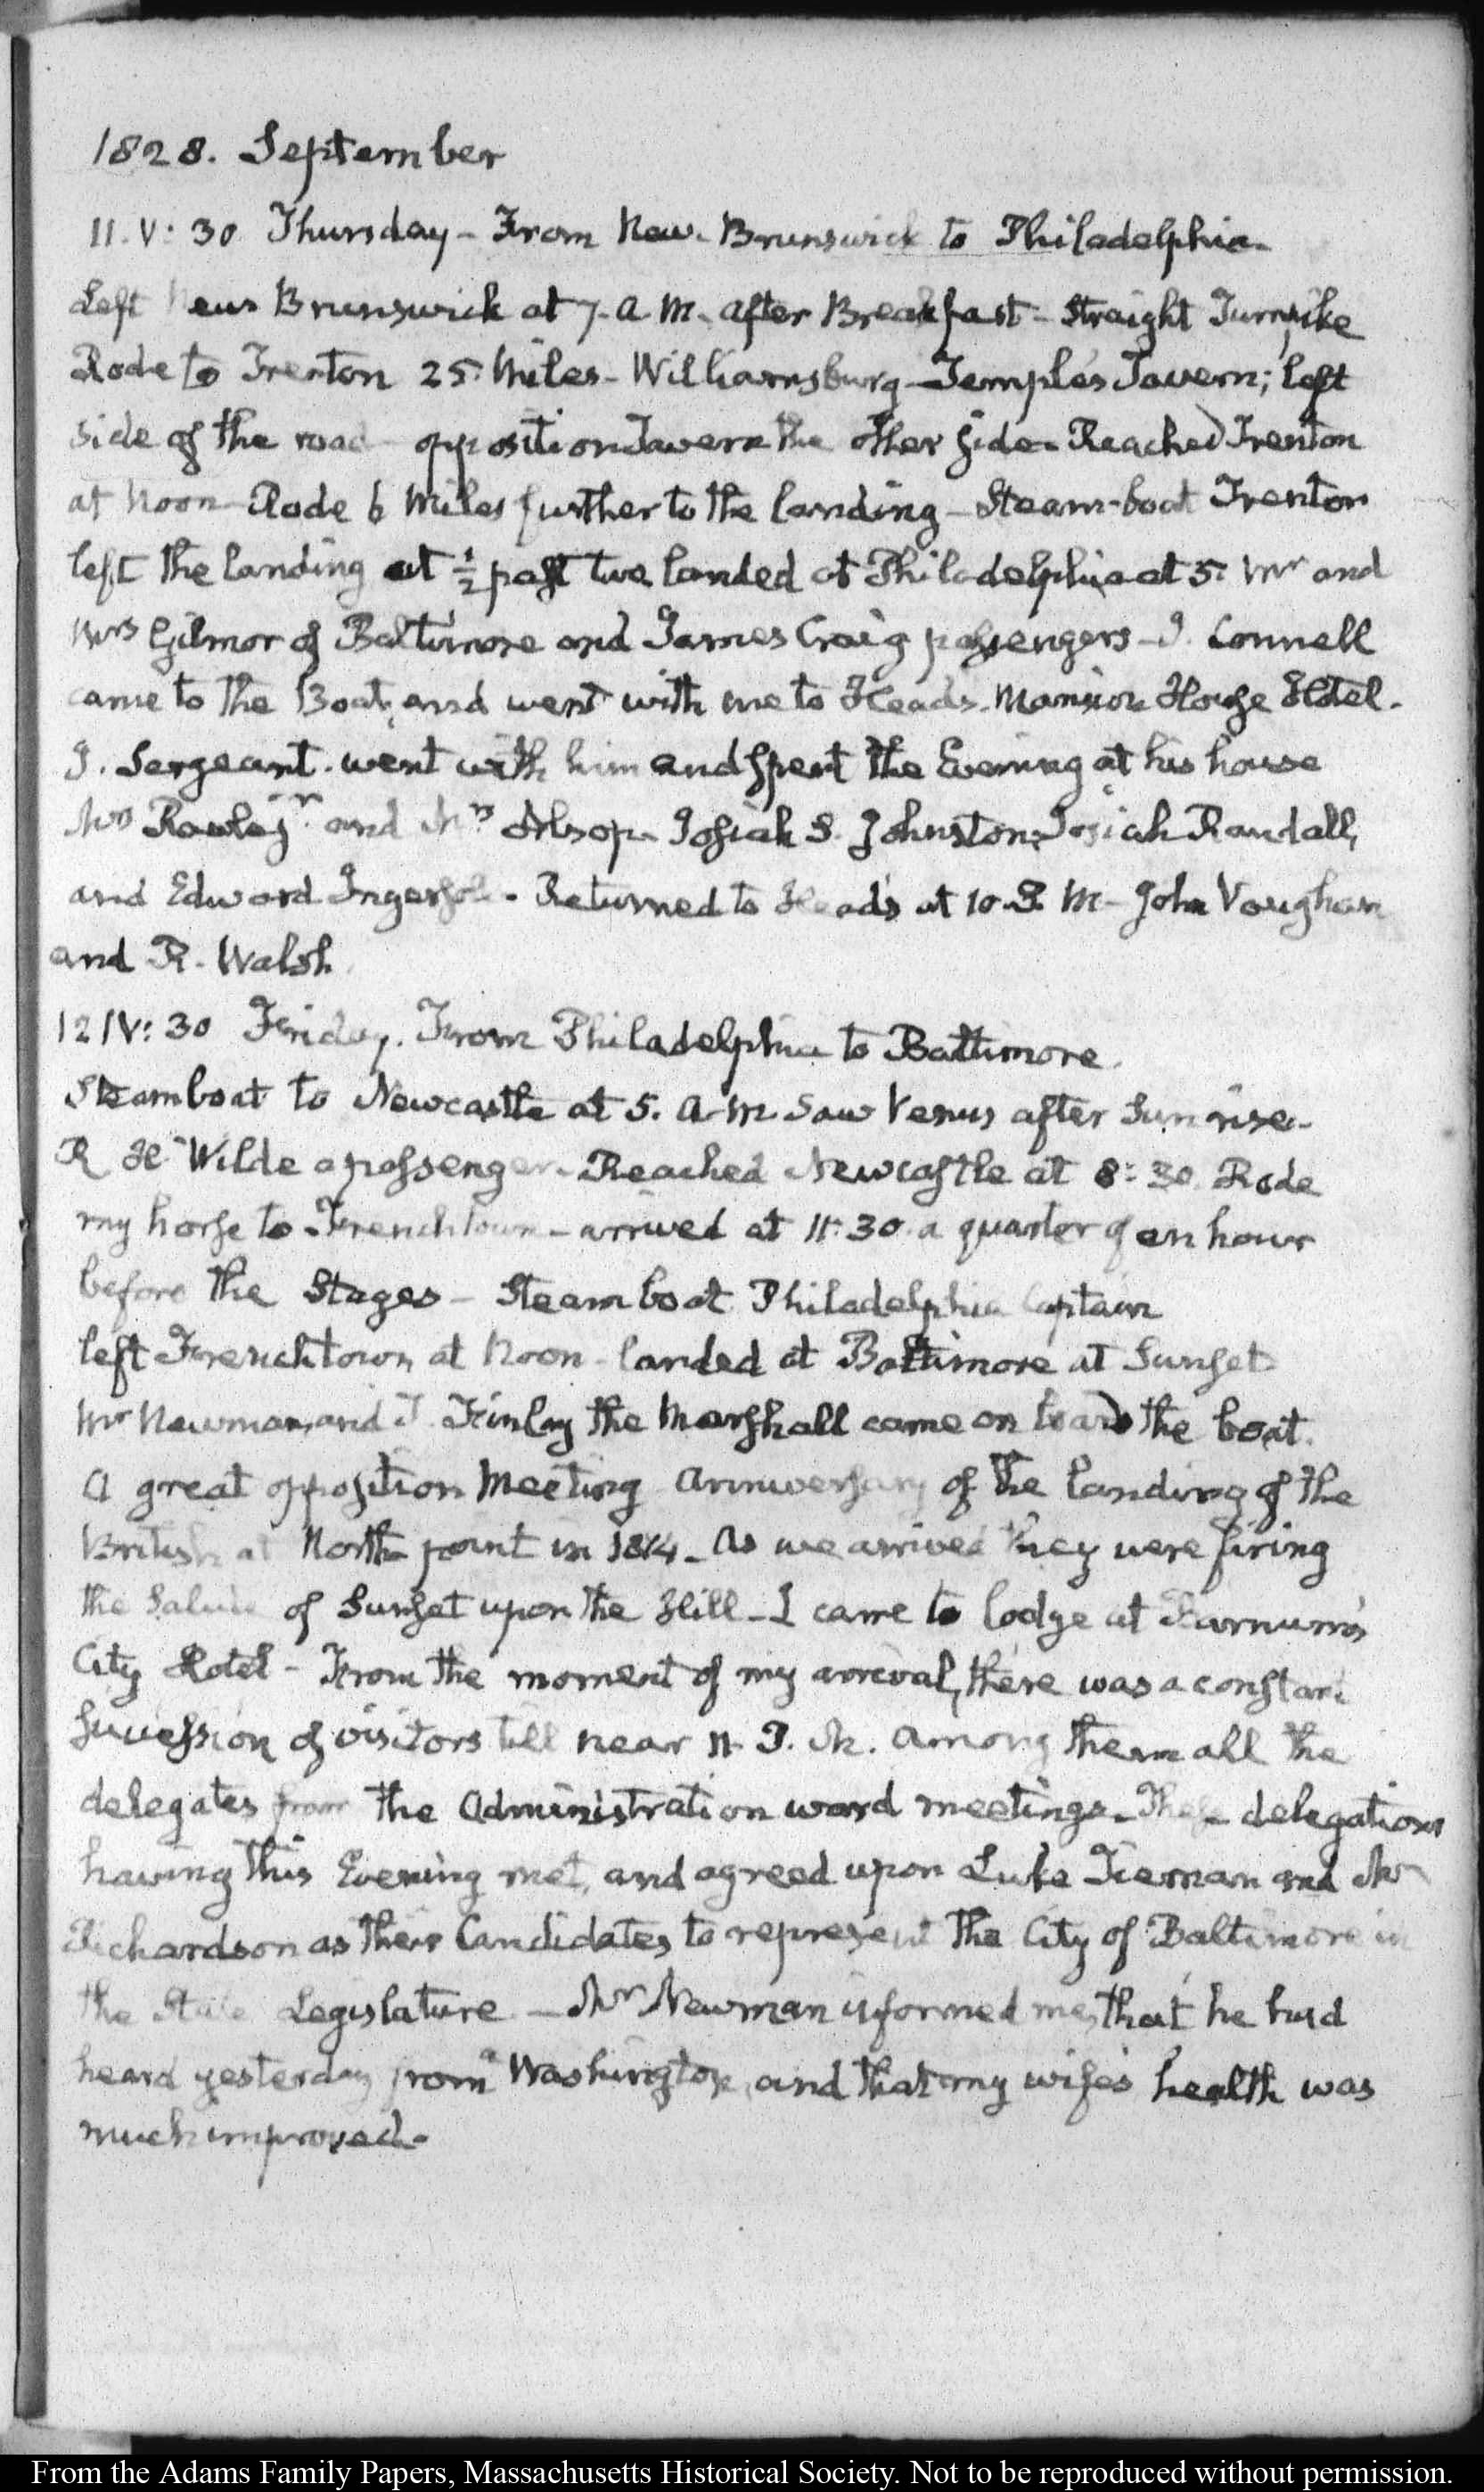 1828. September
11. V: 30 Thursday - From New-Brunswick to Philadelphia-
Left New Brunswick at 7. A.M. after Breakfast - Straight Turnpike
Rode to Trenton 25. Miles - Williamsburg - Temple's Tavern; left
side of the road - opposition Tavern the other side - Reached Trenton
at Noon - Rode 6 Miles further to the landing - Steam-boat Trenton
left the landing at ½ past two landed at Philadelphia at 5. Mr and
Mrs Gilmor of Baltimore and James Craig passengers - J. Connell
came to the Boat, and went with me to Heads. Mansion House Hotel.
J. Sergeant. went with him and spent the Evening at his house
and Alsop - Josiah S. Johnston, Josiah Randall,
and Edward Ingersoll - Returned to Head's at 10. P. M - John Vaughan
and R. Walsh.
12 IV: 30 Friday. From Philadelphia to Baltimore.
Steamboat to Newcastle at 5. A.M. Saw Venus after Sun rise -
R H Wilde a passenger - Reached Newcastle at 8: 30. Rode
my horse to Frenchtown - arrived at 11:30. a quarter of an hour
before the Stages - Steam boat Philadelphia Captain
left Frenchtown at Noon - landed at Baltimore at Sunset
Mr Newman, and T. Finlay the Marshall came on board the boat.
A great opposition Meeting Anniversary of the landing of the
British at North point in 1814 - As we arrived they were firing
the Salute of Sunset upon the Hill - I came to lodge at Barnum's
City Hotel - From the moment of my arrival, there was a constant
succession of visitors till near 11. P. M. Among them all the
delegates from the Administration ward meetings - These delegations
having this Evening met, and agreed upon Luke Tiernan and Mr
Richardson as their Candidates to represent the City of Baltimore in
the State Legislature - Mr Newman informed me, that he had
heard yesterday from Washington, and that my wife's health was
much improved -
From the Adams Family Papers, Massachusetts Historical Society. Not to be reproduced without permission.